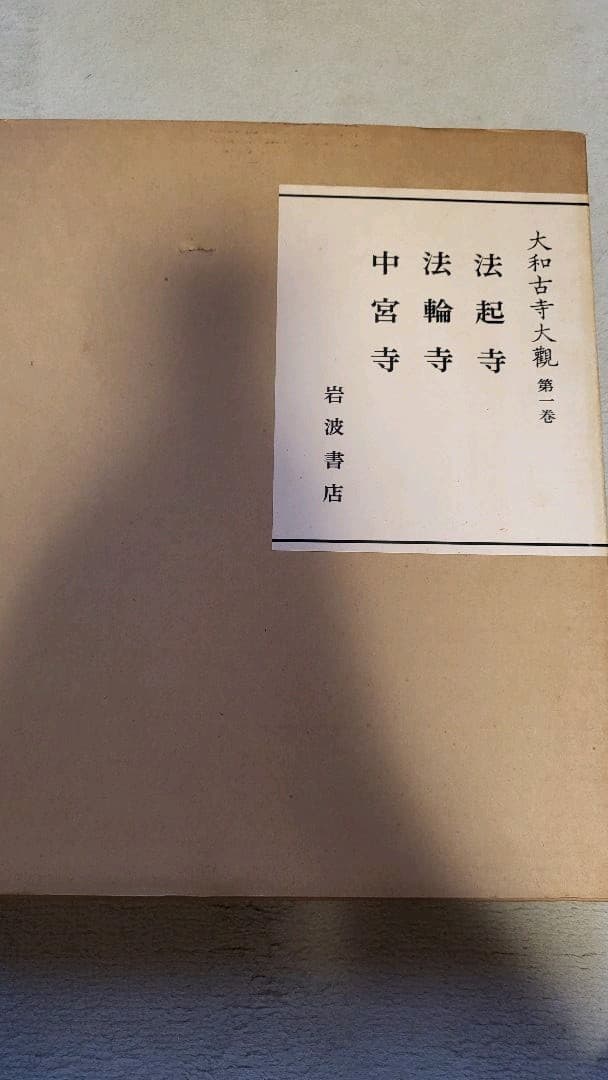 大和古寺大觀 第一巻
法起寺
法輪寺
中宮寺
岩波書店